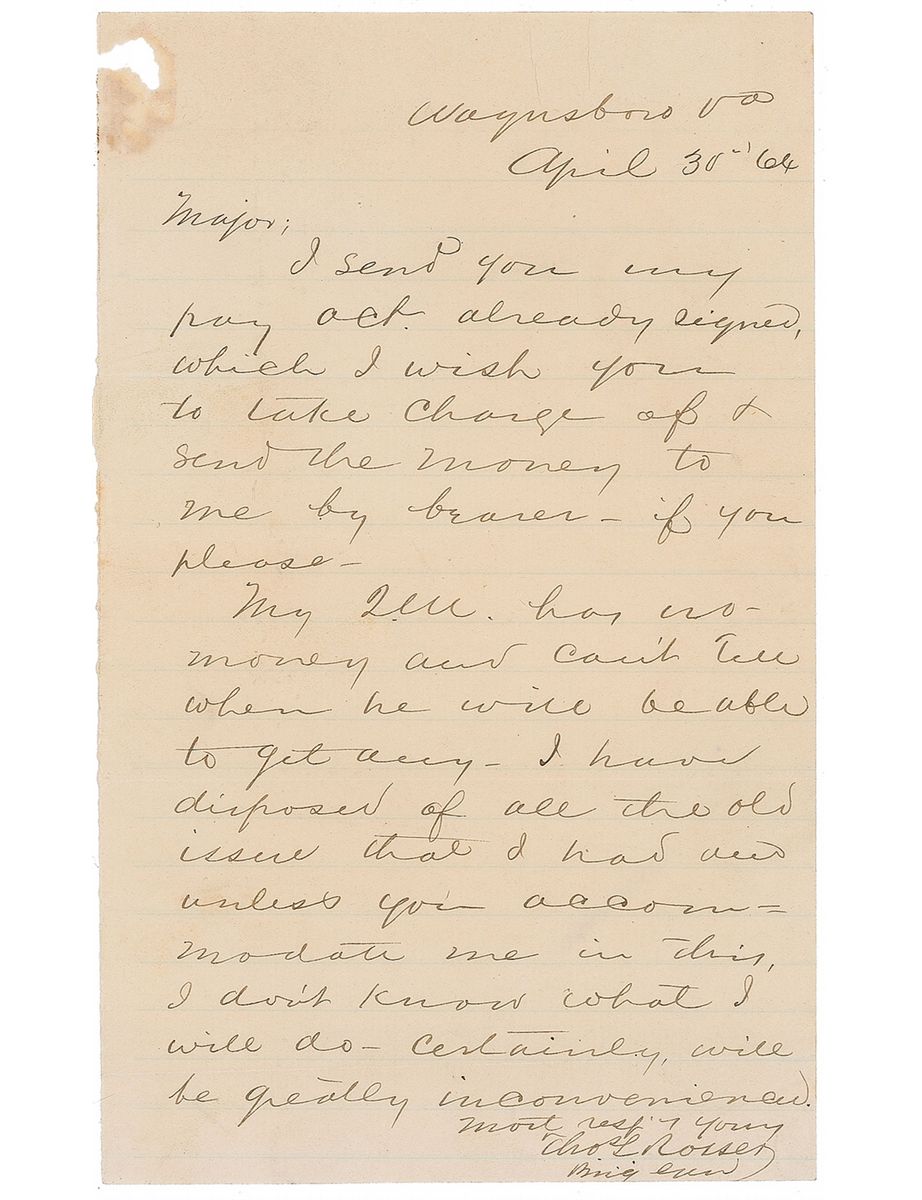 Waynsboro Va
April 30th '64
Major;
I send you my
pay act. already signed,
which I wish you
to take charge of &
send the money to
me by bearer – if you
please –
My Q.M. has no –
money and can't tell
when he will be able
to get any – I have
disposed of all the old
issue that I had and
unless you accom–
modate me in this,
I don't know what I
will do – certainly, will
be greatly inconvenienced.
Most respt yours
Thos L Rosser
Brig Genl